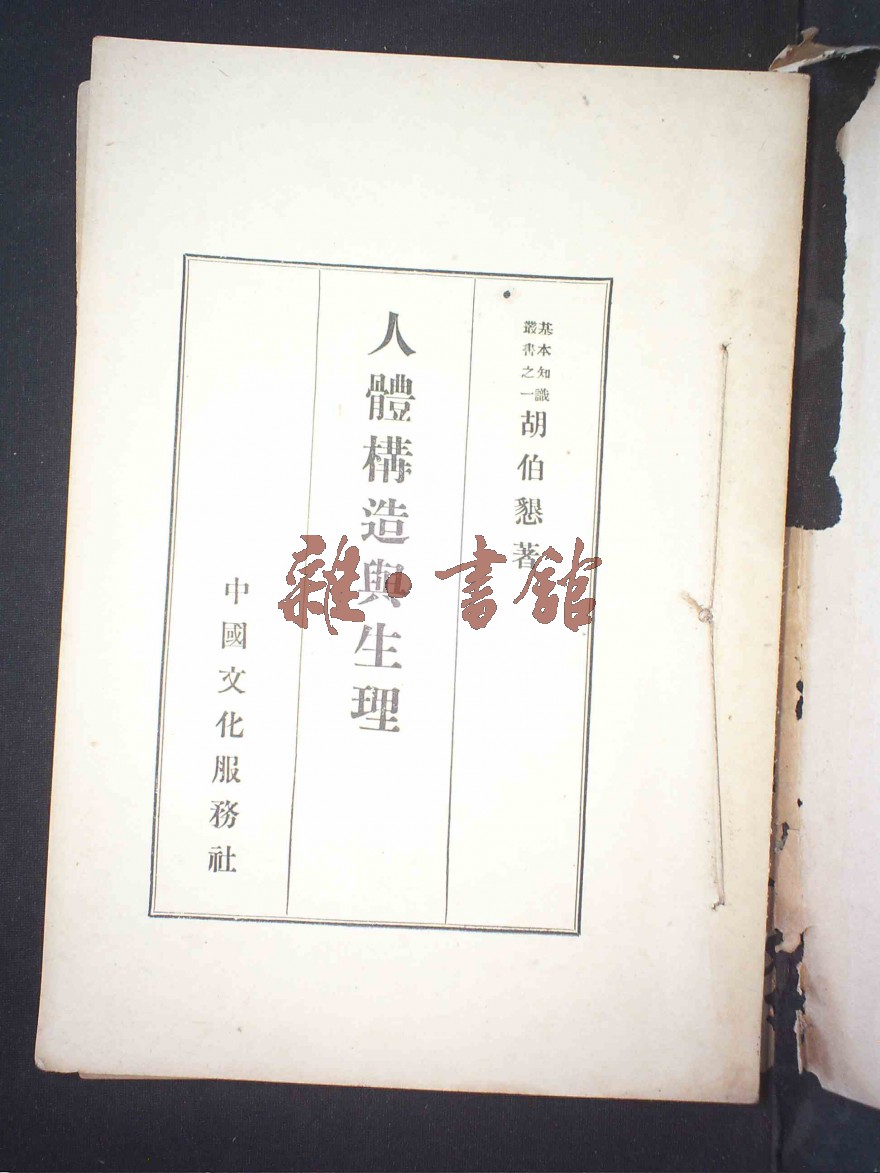 基本知識
叢書之一
胡伯懇著
人體構造與生理
中國文化服務社
雜·書館